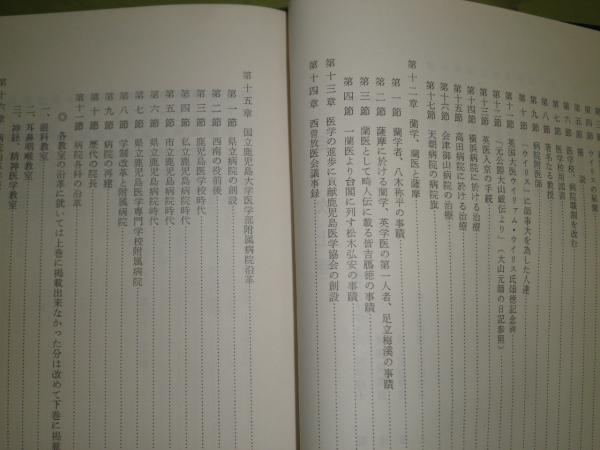 第三節 ウイリスの略
第五節 補説
第六節 医学校、病院職制を改む
第七節 医学校の蔵書
第八節 著名なる教授
第九節 病院附医師
第十節 「ウイリス」に師事大を為した人達
第十一節 英国大医ウイリアム・ウイリス氏頌徳記念碑
第十二節 「元公爵大山巌伝より」(大山元帥の日記参照)
第十三節 英医入京の手続
第十四節 横浜病院に於ける治療
第十五節 高田病院に於ける治療
第十六節 会津御山病院の治療
第十七節 天朝病院の病院旗
第十二章 蘭学、蘭医と薩摩
第一節 蘭学者、八木称平の事蹟
第二節 薩摩に於ける蘭学、英学医の第一人者、足立梅溪の事蹟
第三節 蘭医として畸人伝に載る皆吉鳳徳の事蹟
第四節 一蘭医より台閣に列す松木弘安の事蹟
第十三章 医学の進歩に貢献鹿児島医学協会の創設
第十四章 西薈放医会議事録
第十五章 国立鹿児島大学医学部附属病院沿革
第一節 県立病院の創設
第二節 西南の役前後
第三節 鹿児島医学校時代
第四節 私立鹿児島病院時代
第五節 市立鹿児島病院時代
第六節 県立鹿児島病院時代
第七節 県立鹿児島医学専門学校附属病院
第八節 学制改革と附属病院
第九節 病院の再建
第十節 歴代の院長
第十一節 病院各科の沿革
◎ 各教室の沿革に就いては上巻に掲載出来なかった分は改めて下巻に掲載
一、眼科教室
二、耳鼻咽喉教室
三、神経、精神医学教室
第十六章